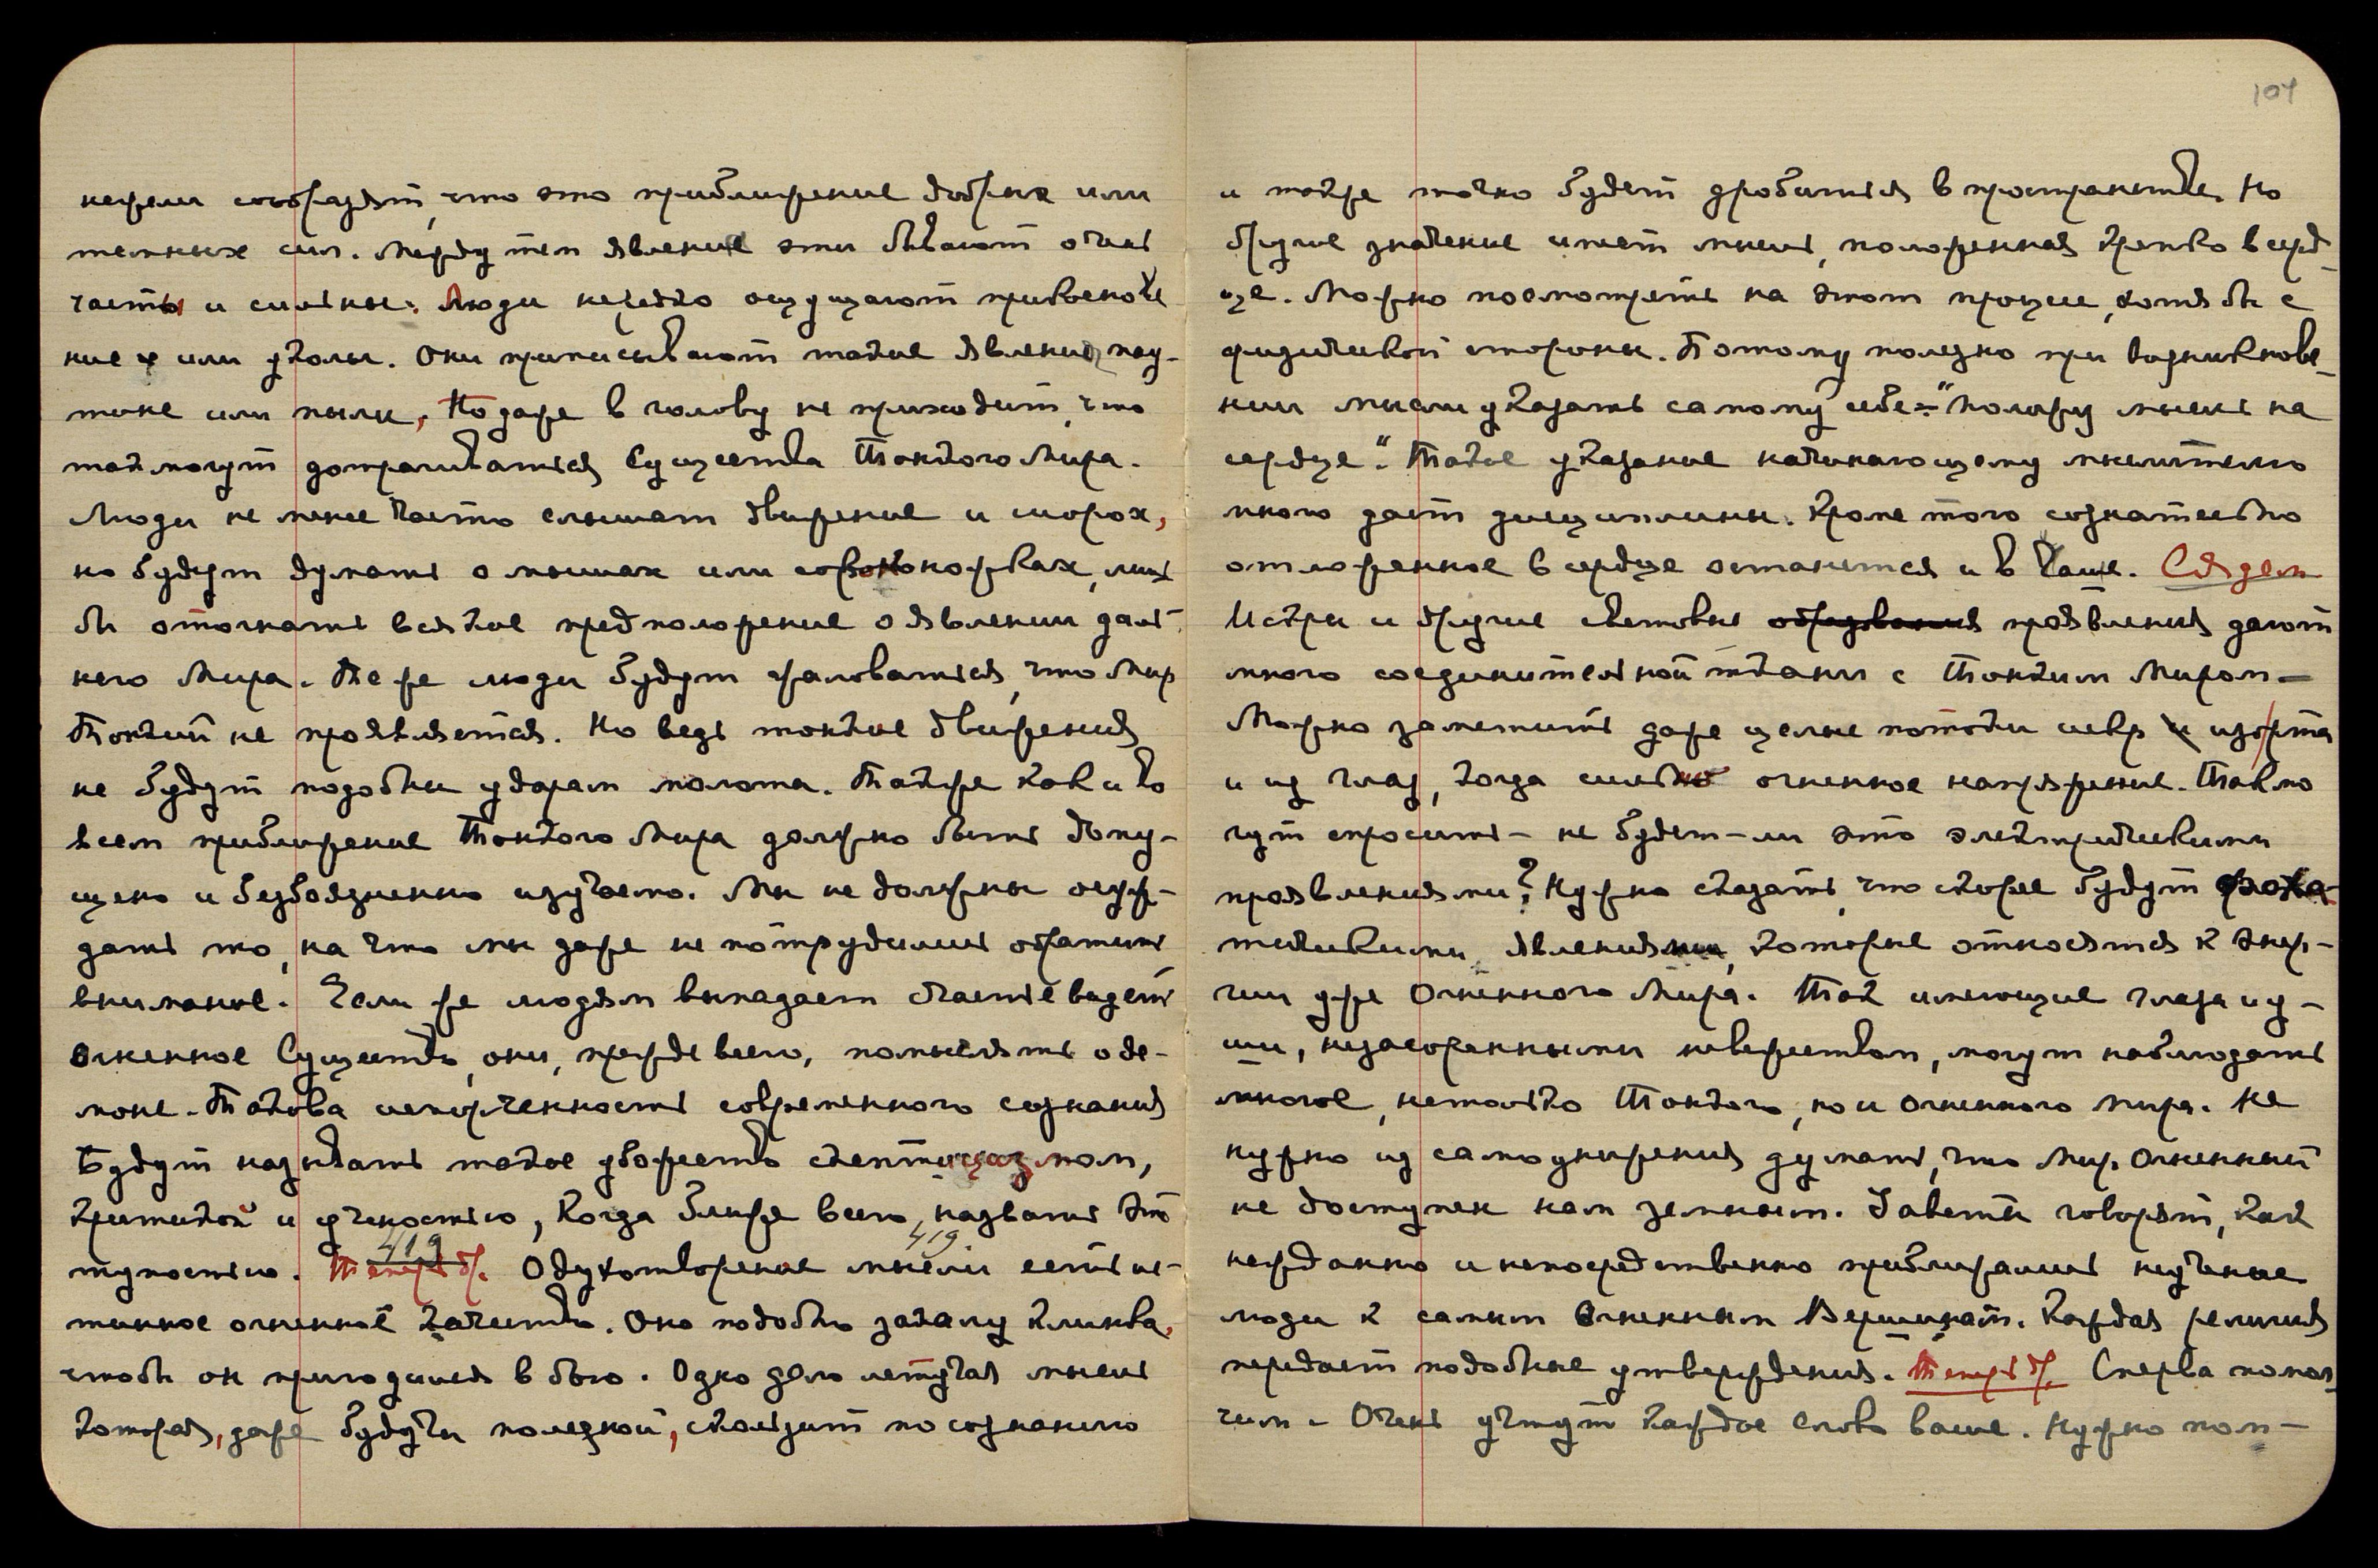 нежели сообразят, что это приближение добрых или
темных сил. Между тем явления эти бывают очень
часты и сильны. Люди нередко ощущают прикоснове
ние или уколы. Они приписывают такие явления пау-
тине или пыли, Но даже в голову не приходит, что
так могут дотрагиваться Существа Тонкого Мира.
Люди не менее часто слышат движение и шорох,
но будут думать о мышах или сороконожках, лишь
бы отогнать всякое предположение о явлении даль-
него Мира. Те же люди будут жаловаться, что Мир
Тонкий не проявляется. Но ведь тонкие движения
не будут подобны ударам молота. Также как и во
всем приближение Тонкого Мира должно быть допу-
щено и безбоязненно изучаемо. Мы не должны осуж-
дать то, на что мы даже не потрудились обратить
внимание. Если же людям выпадает счастье видеть
огненное Существо, они, прежде всего, помыслят о де-
моне. Такова испорченность современного сознания
Будут называть такое убожество скептицизмом,
критикой и ученостью, когда ближе всего, назвать это
тупостью. Теперь др. 419 419. Одухотворение мысли есть ис-
тинное огненное качество. Оно подобно закалу клинка,
чтобы он пригодился в бою. Одно дело летучая мысль
которая, даже будучи полезной, скользит по сознанию
104
и также точно будет дробиться в пространстве. Но
другое значение имеет мысль, положенная крепко в серд-
це. Можно посмотреть на этот процесс, хотя бы с
физической стороны. Потому полезно при возникнове-
нии мысли указать самому себе: "положу мысль на
сердце". Такое указание начинающему мыслителю
много даст дисциплины. Кроме того сознательно
отложенное в сердце останется и в Чаше. Сл. дел.
Искры и другие световые образования проявления дают
много соединительной ткани с Тонким Миром —
Можно заметить даже целые потоки искр и изо рта
и из глаз, когда сильно огненное напряжение. Так мо
гут спросить — не будет-ли это электрическими
проявлениями? Нужно сказать, что скорее будут фоха-
тическими явлениями, которые относятся к энер-
гии уже Огненного Мира. Так имеющие глаза и у-
ши, незасоренными невежеством, могут наблюдать
многое, не только Тонкого, но и огненного мира. Не
нужно из самоунижения думать, что Мир Огненный
не доступен нам земным. Заветы говорят, как
нежданно и непосредственно приближались неученые
люди к самым Огненным Вершинам. Каждая религия
передает подобные утверждения. Теперь др. Сперва помол
чим — Очень учтут каждое слово ваше. Нужно пом-